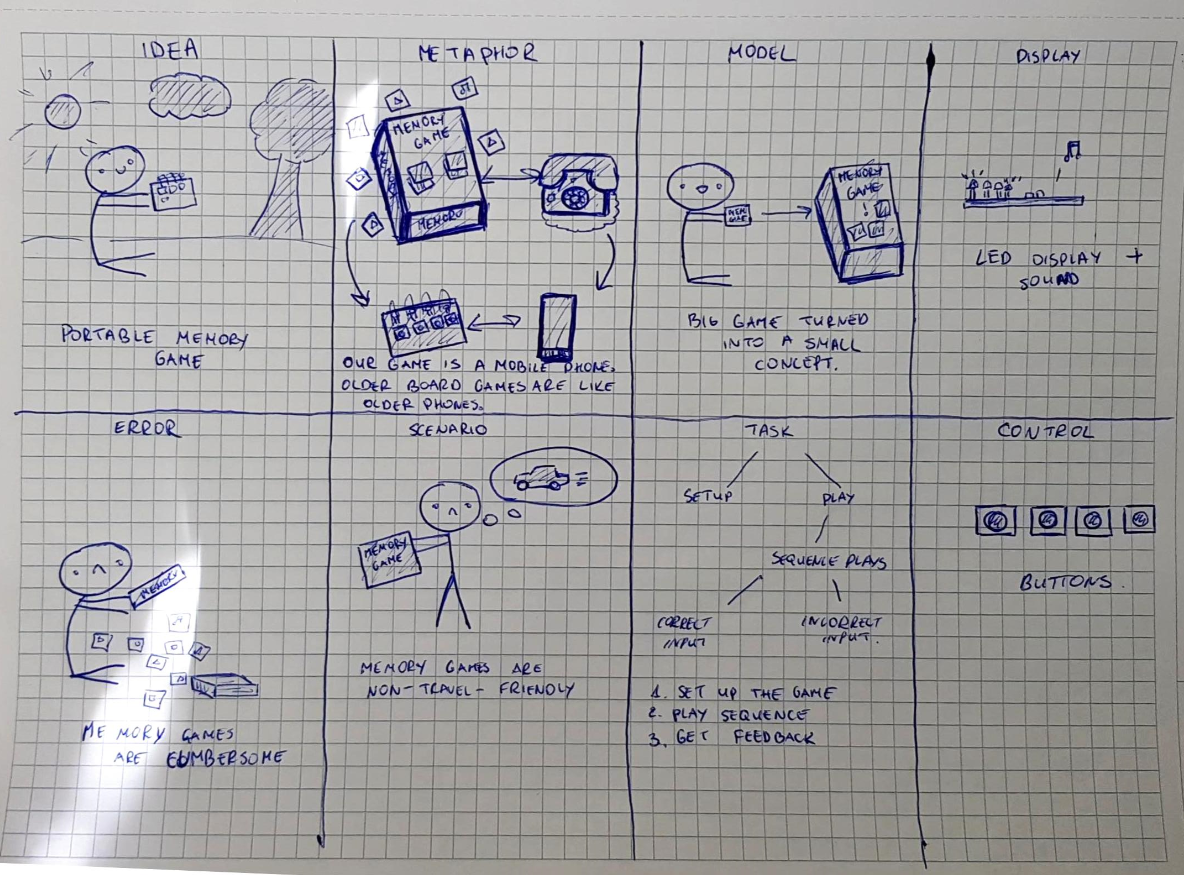 IDEA
PORTABLE MEMORY
GAME
METAPHOR
MEMORY
GAME
MEMORY
OUR GAME IS A MOBILE PHONE.
OLDER BOARD GAMES ARE LIKE
OLDER PHONES.
MODEL
MEM
GAME
MEMORY
GAME
!
BIG GAME TURNED
INTO A SMALL
CONCEPT.
DISPLAY
LED DISPLAY +
SOUND
ERROR
MEMORY
MEMORY GAMES
ARE CUMBERSOME
SCENARIO
MEMORY
GAME
MEMORY GAMES ARE
NON-TRAVEL-FRIENDLY
TASK
SETUP PLAY
SEQUENCE PLAYS
CORRECT
INPUT
INCORRECT
INPUT.
1. SET UP THE GAME
2. PLAY SEQUENCE
3. GET FEEDBACK
CONTROL
BUTTONS.